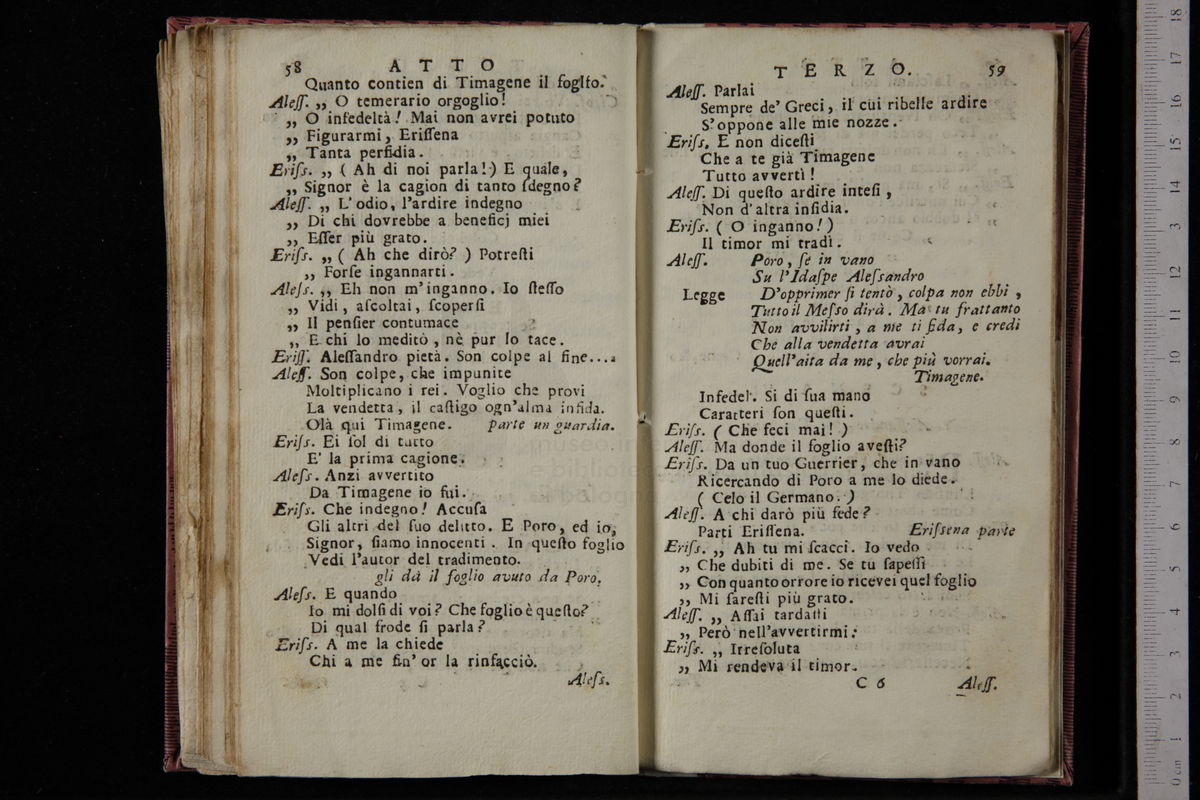 58 ATTO
Quanto contien di Timagene il foglio.
Aleſſ. „ O temerario orgoglio!
„ O infedeltà! Mai non avrei potuto
„ Figurarmi, Eriſſena
„ Tanta perfidia.
Eriſs. „ ( Ah di noi parla!) E quale,
„ Signor è la cagion di tanto ſdegno?
Aleſſ. „ L'odio, l'ardire indegno
„ Di chi dovrebbe a beneficj miei
„ Eſſer più grato.
Eriſs. „ ( Ah che dirò? ) Potreſti
„ Forſe ingannarti.
Aleſs. „ Eh non m'inganno. Io ſteſſo
„ Vidi, aſcoltai, ſcoperſi
„ Il penſier contumace
„ E chi lo meditò, nè pur lo tace.
Eriſſ. Aleſſandro pietà. Son colpe al fine....
Aleſſ. Son colpe, che impunite
Moltiplicano i rei. Voglio che provi
La vendetta, il caſtigo ogn'alma infida.
Olà qui Timagene. parte un guardia.
Eriſs. Ei ſol di tutto
E' la prima cagione.
Aleſs. Anzi avvertito
Da Timagene io fui.
Eriſs. Che indegno! Accuſa
Gli altri del ſuo delitto. E Poro, ed io,
Signor, ſiamo innocenti. In queſto foglio
Vedi l'autor del tradimento.
gli dà il foglio avuto da Poro.
Aleſs. E quando
Io mi dolſi di voi? Che foglio è queſto?
Di qual frode ſi parla?
Eriſs. A me la chiede
Chi a me fin' or la rinfacciò.
Aleſs.
TERZO. 59
Aleſſ. Parlai
Sempre de' Greci, il cui ribelle ardire
S'oppone alle mie nozze.
Eriſs. E non diceſti
Che a te già Timagene
Tutto avvertì!
Aleſſ. Di queſto ardire inteſi,
Non d'altra inſidia.
Eriſs. ( O inganno! )
Il timor mi tradì.
Aleſſ. Poro, ſe in vano
Su l'Idaſpe Aleſsandro
Legge D'opprimer ſi tentò, colpa non ebbi,
Tutto il Meſso dirà. Ma tu frattanto
Non avvilirti, a me ti fida, e credi
Che alla vendetta avrai
Quell'aita da me, che più vorrai.
Timagene.
Infedel. Si di ſua mano
Caratteri ſon queſti.
Eriſs. ( Che feci mai! )
Aleſſ. Ma donde il foglio aveſti?
Eriſs. Da un tuo Guerrier, che in vano
Ricercando di Poro a me lo diede.
( Celo il Germano. )
Aleſſ. A chi darò più fede?
Parti Eriſſena. Eriſsena parte
Eriſs. „ Ah tu mi ſcacci. Io vedo
„ Che dubiti di me. Se tu ſapeſſi
„ Con quanto orrore io ricevei quel foglio
„ Mi ſareſti più grato.
Aleſſ. „ Aſſai tardaſti
„ Però nell'avvertirmi.
Eriſs. „ Irreſoluta
„ Mi rendeva il timor.
C 6 Aleſſ.